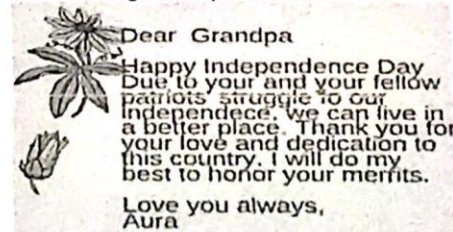 Dear Grandpa
Happy Independence Day
Due to your and your fellow
patriots struggle fo our
Independece, we can live in
a better place. Thank you for
your love and dedication to
this country. I will do my
best to honor your merrits.
Love you always,
Aura